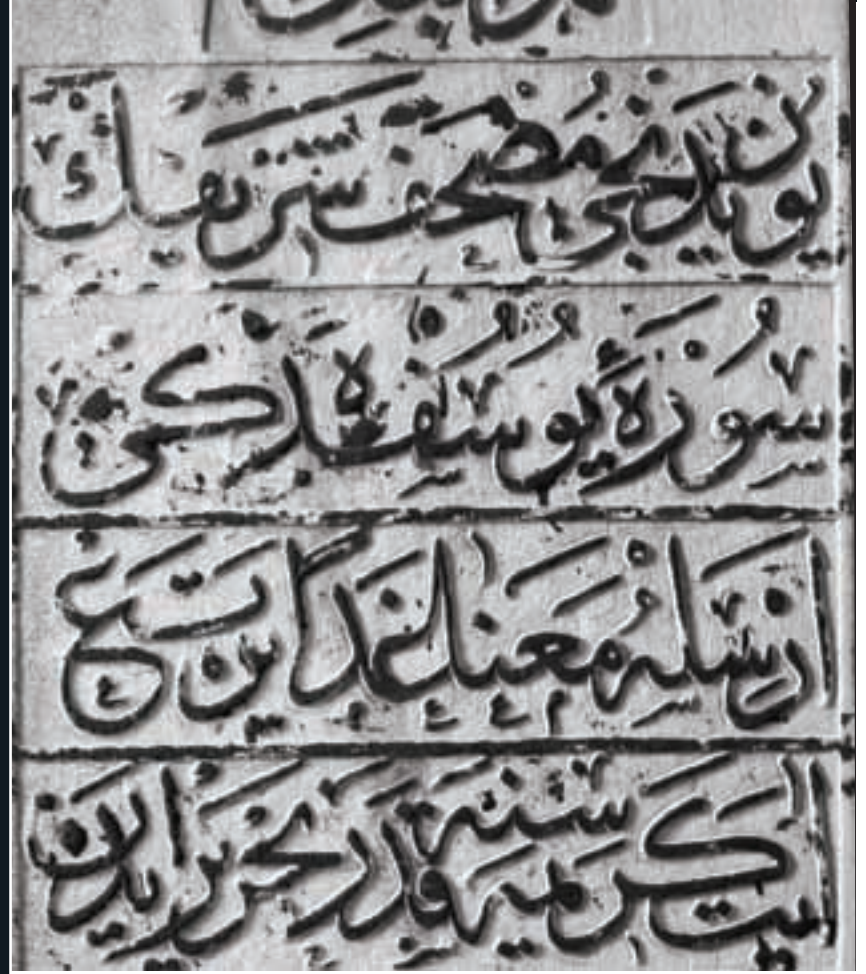 يدنجى مصحف شريفك
سورهٔ يوسفده كى
ارسله معنا غدا يرتع
ايت كريمه سنه قدر تحرير ايدن